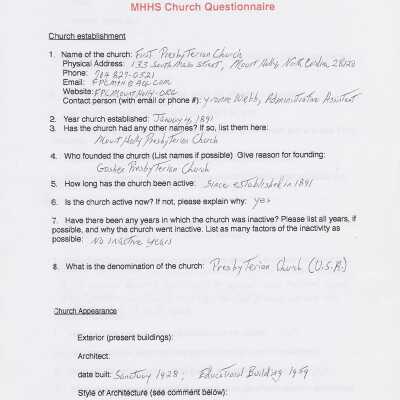 MHHS Church Questionnaire
Church establishment
1. Name of the church: First Presbyterian Church
Physical Address: 133 South Main Street, Mount Holly, North Carolina 28120
Phone: 704 827-0521
Email: FPCMTH@AOL.com
Website: FPCMountHolly.ORG
Contact person (with email or phone #): Yvonne Webb, Administrative Assistant
2. Year church established: January 4, 1891
3. Has the church had any other names? If so, list them here:
Mount Holly Presbyterian Church
4. Who founded the church (List names if possible) Give reason for founding:
Goshen Presbyterian Church
5. How long has the church been active: Since established in 1891
6. Is the church active now? If not, please explain why: yes
7. Have there been any years in which the church was inactive? Please list all years, if
possible, and why the church went inactive. List as many factors of the inactivity as
possible: No inactive years
8. What is the denomination of the church: Presbyterian Church (U.S.A.)
Church Appearance
Exterior (present buildings):
Architect:
date built: Sanctuary 1928; Educational Building 1959
Style of Architecture (see comment below):